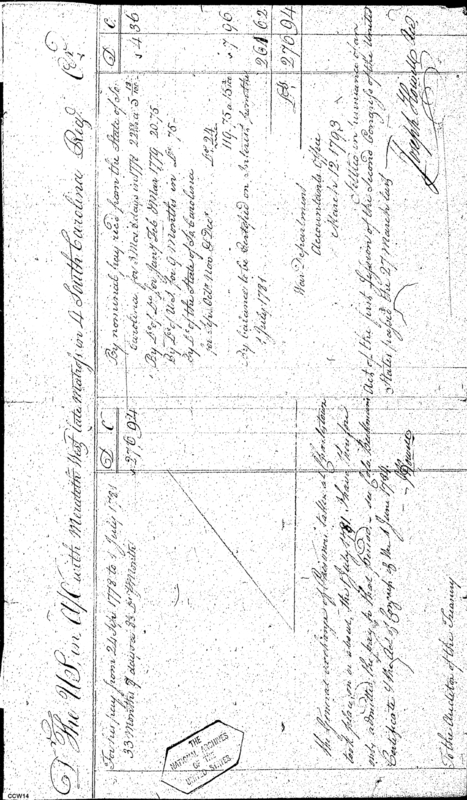 Dr The U.S. in A/C with Meredeth West late Matross in 4 South Carolina Reg. Cr
D C
For his pay from 24 Apr 1778 to 1 July 1781
33 Months 7 days @ 8⅓ Dr Month
$ 276 94
the General exchange of Prisoners taken at Charlestown
took place on or about, the 1 July 1781 I have therefore
only admitted the pay to that period - see Cols. Beekman's
Certificate & the Act of Congress of the 3 June 1784
J Howell
To the Auditor of the Treasury
D C
By nominal pay rec'd from the State of So.
Carolina for 3 Mos 8 days in 1778
$ 4 36
By Do of Do for Jany Feb & Mar 1779 20.75
by Do of Do for 9 Months in Do 75.
by Do of the State of So Carolina
for Sepr Octr Nov & Decr Do 24
119.75
$ 7 96
By balance to be Certified on Interest from the
1 July 1781
261 62
Dolls 276 94
War department
Accountants Office
March 12. 1793
Settled in pursuance of an
Act of the first Session of the Second Congress of the United
States, passed the 27 March last
Joseph Howell Acct
THE
NATIONAL ARCHIVES
OF THE
UNITED STATES
CCW14